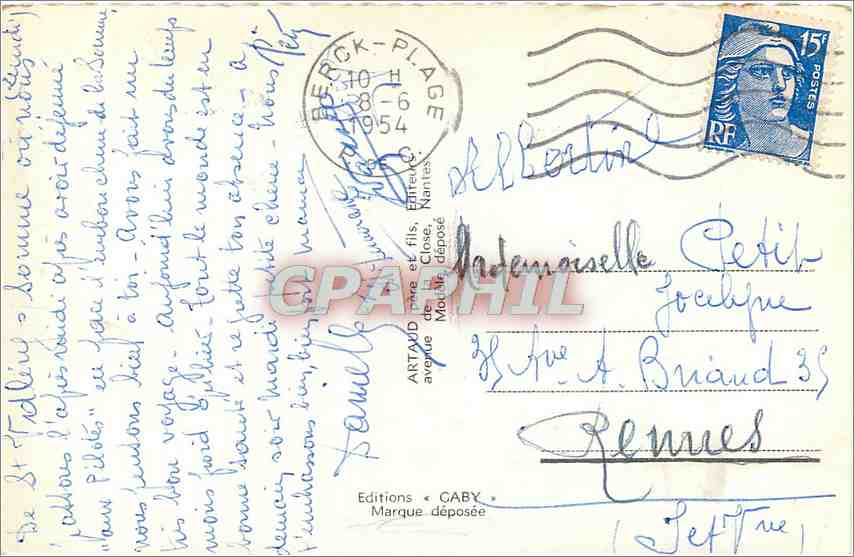 De St Valéry s Somme où nous
(Lundi)
passons l'après midi après avoir déjeuné
"aux Pilotes" en face l'embouchure de la Somme,
nous pensons bien à toi - Avons fait un
très bon voyage - Aujourd'hui avons du temps
moins froid qu'hier - tout le monde est en
bonne santé et regrette ton absence - à
demain soir mardi petite chérie - Nous
t'embrassons bien, bien fort maman
Danielle
BERCK-PLAGE
10 H
8-6
1954
15F
POSTES
RF
Albertine
Mademoiselle Petit
Jocelyne
35 Ave A. Briand 35
Rennes
(I et Vne)
ARTAUD père et fils, Editeurs.
avenue de la Close, Nantes
Modèle déposé
CPAPHIL
Editions « GABY »
Marque déposée